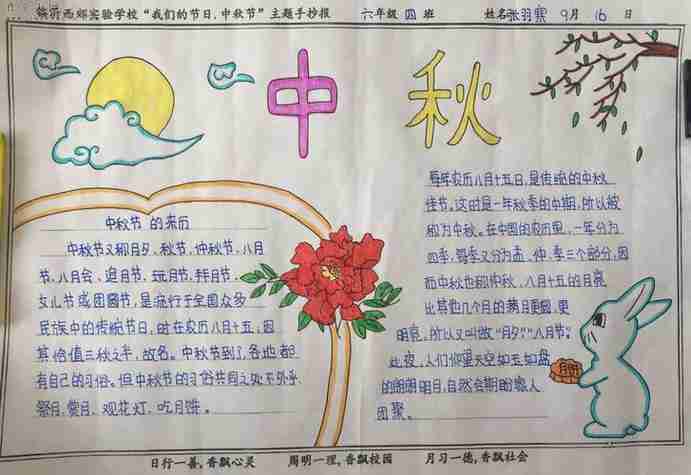 镇沂西郊实验学校“我们的节日·中秋节”主题手抄报 六年级 四 班 姓名 张羽霏 9月 16 日
中秋
中秋节 的来历
中秋节又称月夕、秋节、仲秋节、八月
节、八月会、追月节、玩月节、拜月节、
女儿节或团圆节，是流行于全国众多
民族中的传统节日，时在农历八月十五，因
其恰值三秋之半，故名。中秋节到了，各地都
有自己的习俗。但中秋节的习俗共同之处不外乎
祭月、赏月、观花灯、吃月饼。
每年农历八月十五日，是传统的中秋
佳节。这时是一年秋季的中期，所以被
称为中秋。在中国的农历里，一年分为
四季，每季又分为孟、仲、季三个部分，因
而中秋也称仲秋。八月十五的月亮
比其他几个月的满月更圆，更
明亮，所以又叫做“月夕”“八月节”。
此夜，人们仰望天空如玉如盘
的朗朗明月，自然会期盼家人
团聚。
日行一善，香飘心灵 周明一理，香飘校园 月习一德，香飘社会